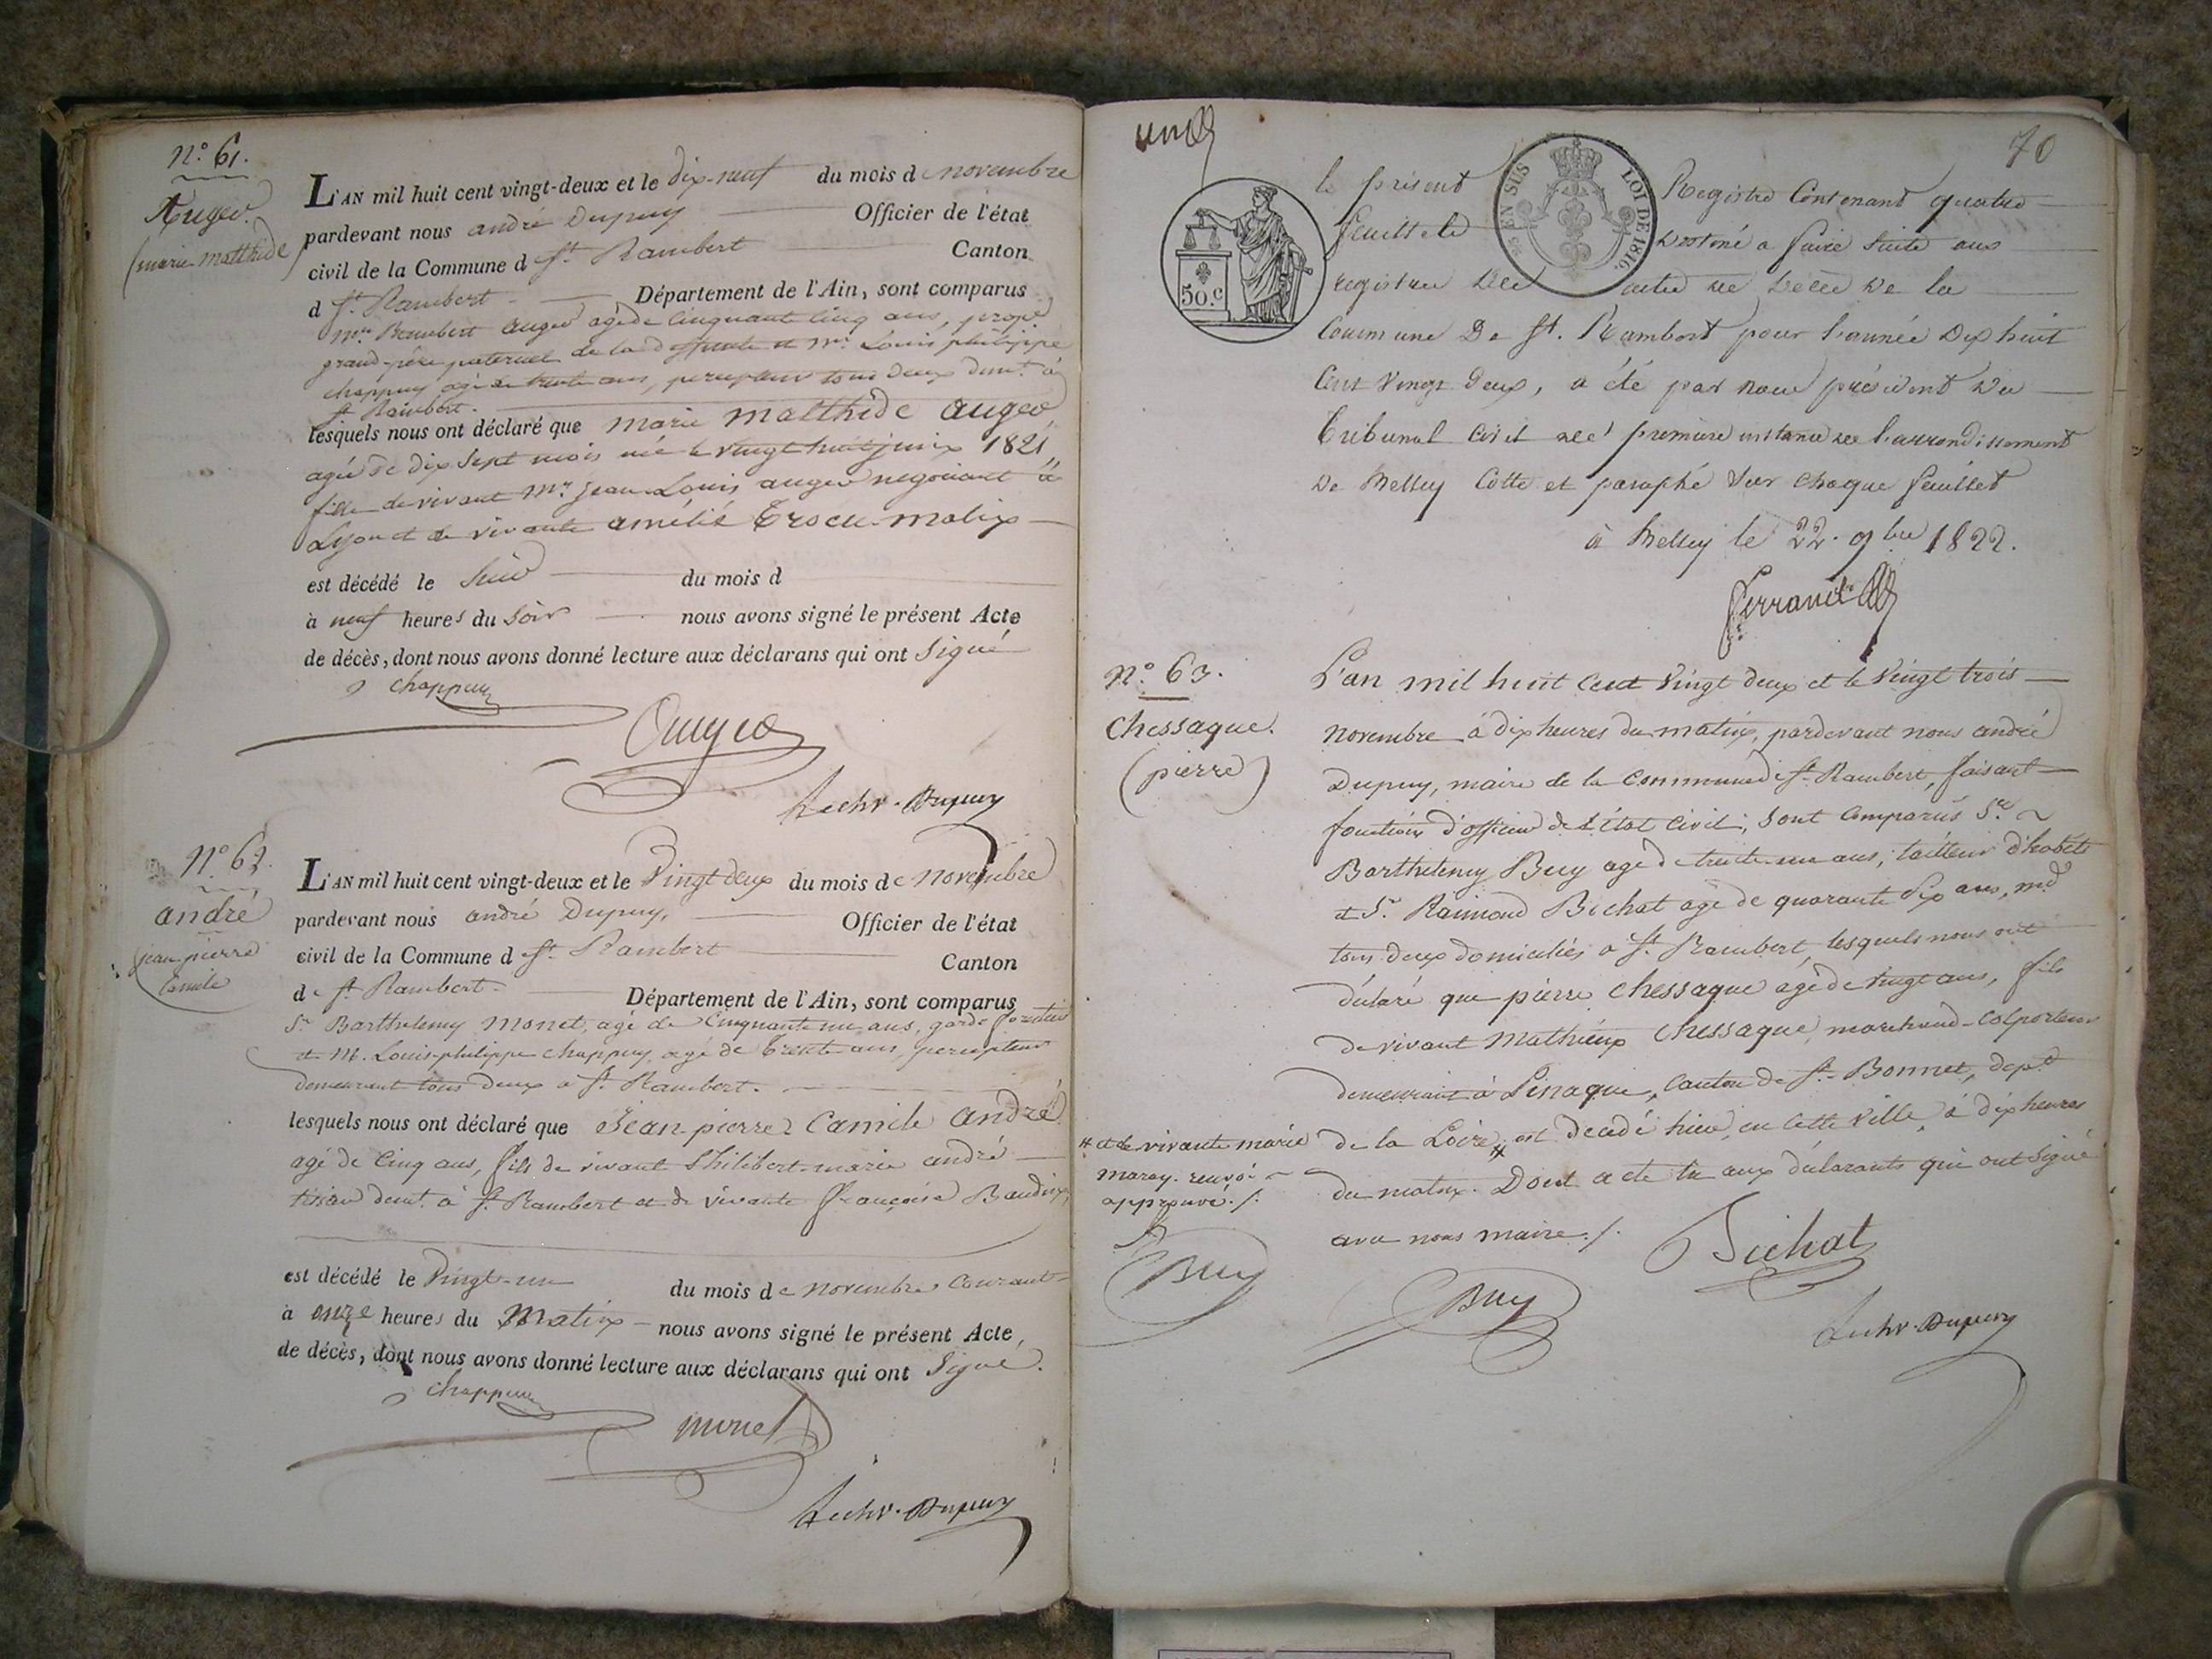 N.° 61.
Auger.
(marie matthide)
L'AN mil huit cent vingt-deux et le dix-neuf du mois de novembre
pardevant nous andré Dupuy Officier de l'état
civil de la Commune d St. Rambert Canton
d St. Rambert - Département de l'Ain, sont comparus
Mr. Rambert auger agé de Cinquante cinq ans, propre
grand-père paternel de la defunte et Mr. Louis philippe
chappuy agé de trente ans, percepteur tous deux demt. à
St. Rambert.
lesquels nous ont déclaré que marie matthide auger
agée de dix sept mois née le vingt huit juin 1821,
fille de vivant Mr. Jean-Louis auger negociant à
Lyon et de vivante amélie
est décédé le hier du mois d
à neuf heures du Soir nous avons signé le présent Acte
de décès, dont nous avons donné lecture aux déclarans qui ont Signé
chappuy
Auger
Dupuy
N.° 62.
andré
jean pierre
Camile
L'AN mil huit cent vingt-deux et le Vingt deux du mois de Novembre
pardevant nous andré Dupuy, Officier de l'état
civil de la Commune d St. Rambert Canton
de St. Rambert - Département de l'Ain, sont comparus
Sr. Barthelemy Monet, agé de Cinquante un ans, garde forestier
et M. Louis-philippe chappuy agé de Trente ans, percepteur
demeurant tous deux à St. Rambert.
lesquels nous ont déclaré que Jean-pierre Camile André
agé de Cinq ans, fils de vivant Philibert-marie andré
demt. à St. Rambert et de vivante françoise Baudin,
est décédé le Vingt-un du mois de novembre Courant
à onze heures du Matin - nous avons signé le présent Acte,
de décès, dont nous avons donné lecture aux déclarans qui ont Signé.
chappuy
monet
Dupuy
70
50.c
EN SUS LOI DE 1816.
le présent Registre Contenant quatre
feuillets destiné a faire Suite aux
registres des actes de décès de la
Commune De St. Rambert pour l'année Dix huit
Cent Vingt Deux, a été par nous président du
Tribunal Civil de première instance de l'arrondissement
De Belley Cotté et paraphé Sur chaque feuillet
à Belley le 22. 9bre 1822.
Ferrand
N.° 63.
Chessaque.
(pierre)
L'an mil huit cent Vingt deux et le Vingt trois
novembre à dix heures du matin, pardevant nous andré
Dupuy, maire de la Commune de St. Rambert, faisant
fonctions d'officier de l'état Civil, Sont Comparus Sr.
Barthelemy Buy agé de trente-un ans, tailleur d'habits
et Sr. Raimond Bichat agé de quarante Six ans, md
tous deux domiciliés à St. Rambert, lesquels nous ont
déclaré que pierre Chessaque agé de vingt ans, fils
de vivant Mathieux Chessaque, marchand-Colporteur
demeurant à Pinaque, Canton de St. Bonnet, dept.
de la Loire, # est décédé hier, en cette Ville, à dix heures
du matin. Dont acte lu aux déclarants qui ont Signé
avec nous maire ./.
# et de vivante marie
maray. renvoi
approuvé ./.
Buy
Buy
Bichat
Dupuy